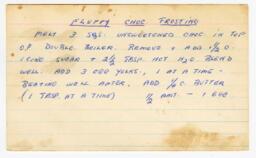 FLUFFY CHOC FROSTING
MELT 3 SQS. UNSWEETENED CHOC IN TOP
OF DOUBLE BOILER. REMOVE & ADD 1½ C.
ICING SUGAR & 2½ TBSP. HOT H2O. BLEND
WELL. ADD 3 EGG YOLKS, 1 AT A TIME -
BEATING WELL AFTER. ADD C. BUTTER
(1 TBSP. AT A TIME) ½ AMT. - 1 EGG